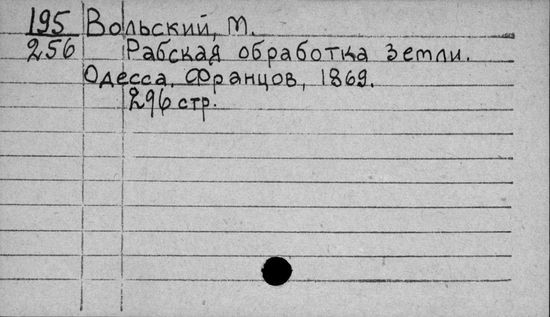 195 Вольский, М.
256 Рабская обработка земли.
Одесса, Францов, 1869.
296 стр.